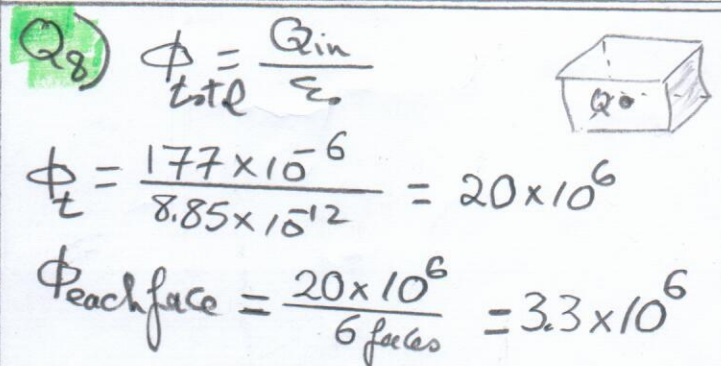 Q8) Φtotl = Qin / ε₀
Q
Φt = 177×10⁻⁶ / 8.85×10⁻¹² = 20×10⁶
Φeach face = 20×10⁶ / 6 faces = 3.3×10⁶